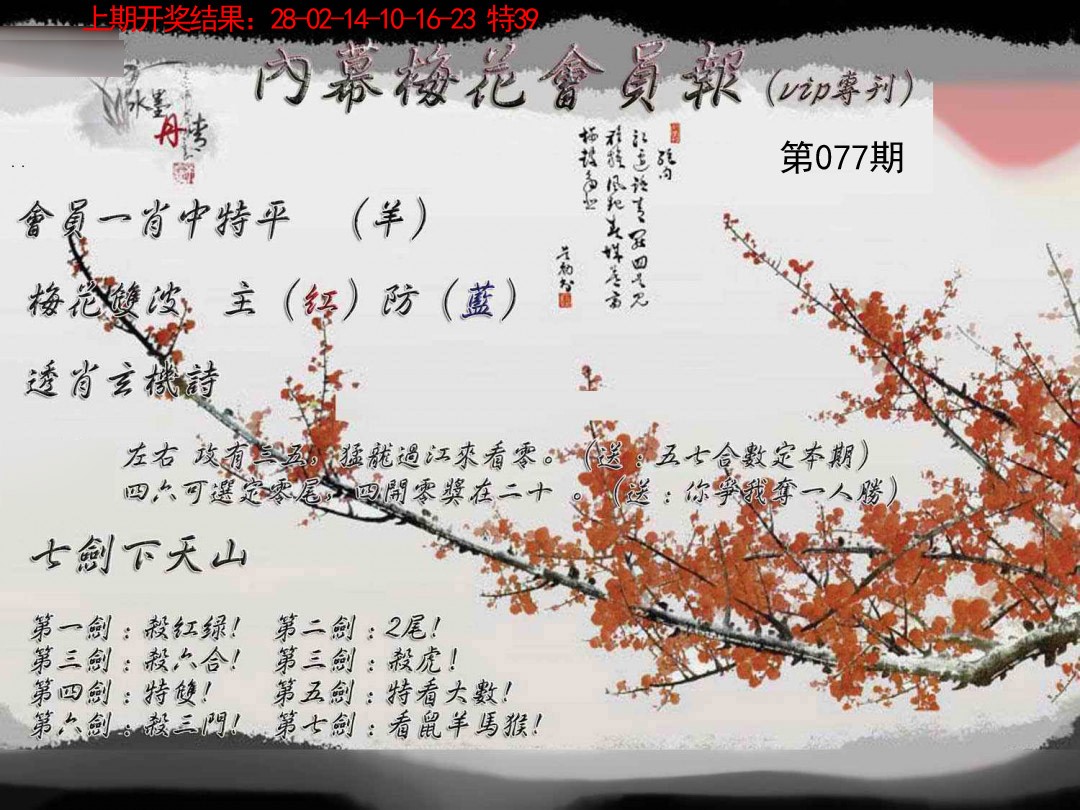 上期开奖结果：28-02-14-10-16-23 特39
內幕梅花會員報（vip專刊）
水墨
丹情
第077期
會員一肖中特平 （羊）
梅花雙波 主（红）防（藍）
透肖玄機詩
左右 攻有三五，猛龍過江來看零。（送：五七合數定本期）
四六可選定零尾，四開零獎在二十 。（送：你爭我奪一人勝）
七劍下天山
第一劍：殺红绿！ 第二劍：2尾！
第三劍：殺六合！ 第三劍：殺虎！
第四劍：特雙！ 第五劍：特看大數！
第六劍：殺三門！ 第七劍：看鼠羊馬猴！